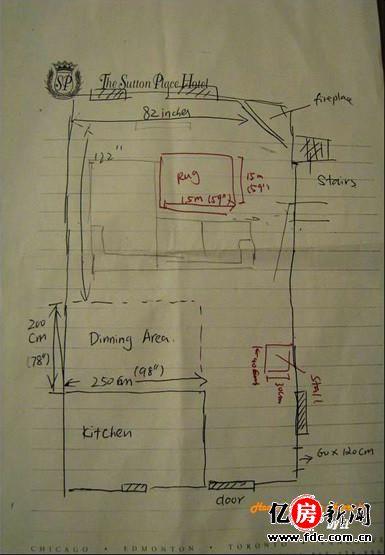 SP
The Sutton Place Hotel
fireplace
82 inches
122"
Rug
1.5m (59")
1.5m
(59")
Stairs
200
cm
(78")
Dinning Area.
250cm (98")
30cm
Stall
Kitchen
60 x 120cm
door
亿房新闻
www.fdc.com.cn
CHICAGO • EDMONTON • TORONTO